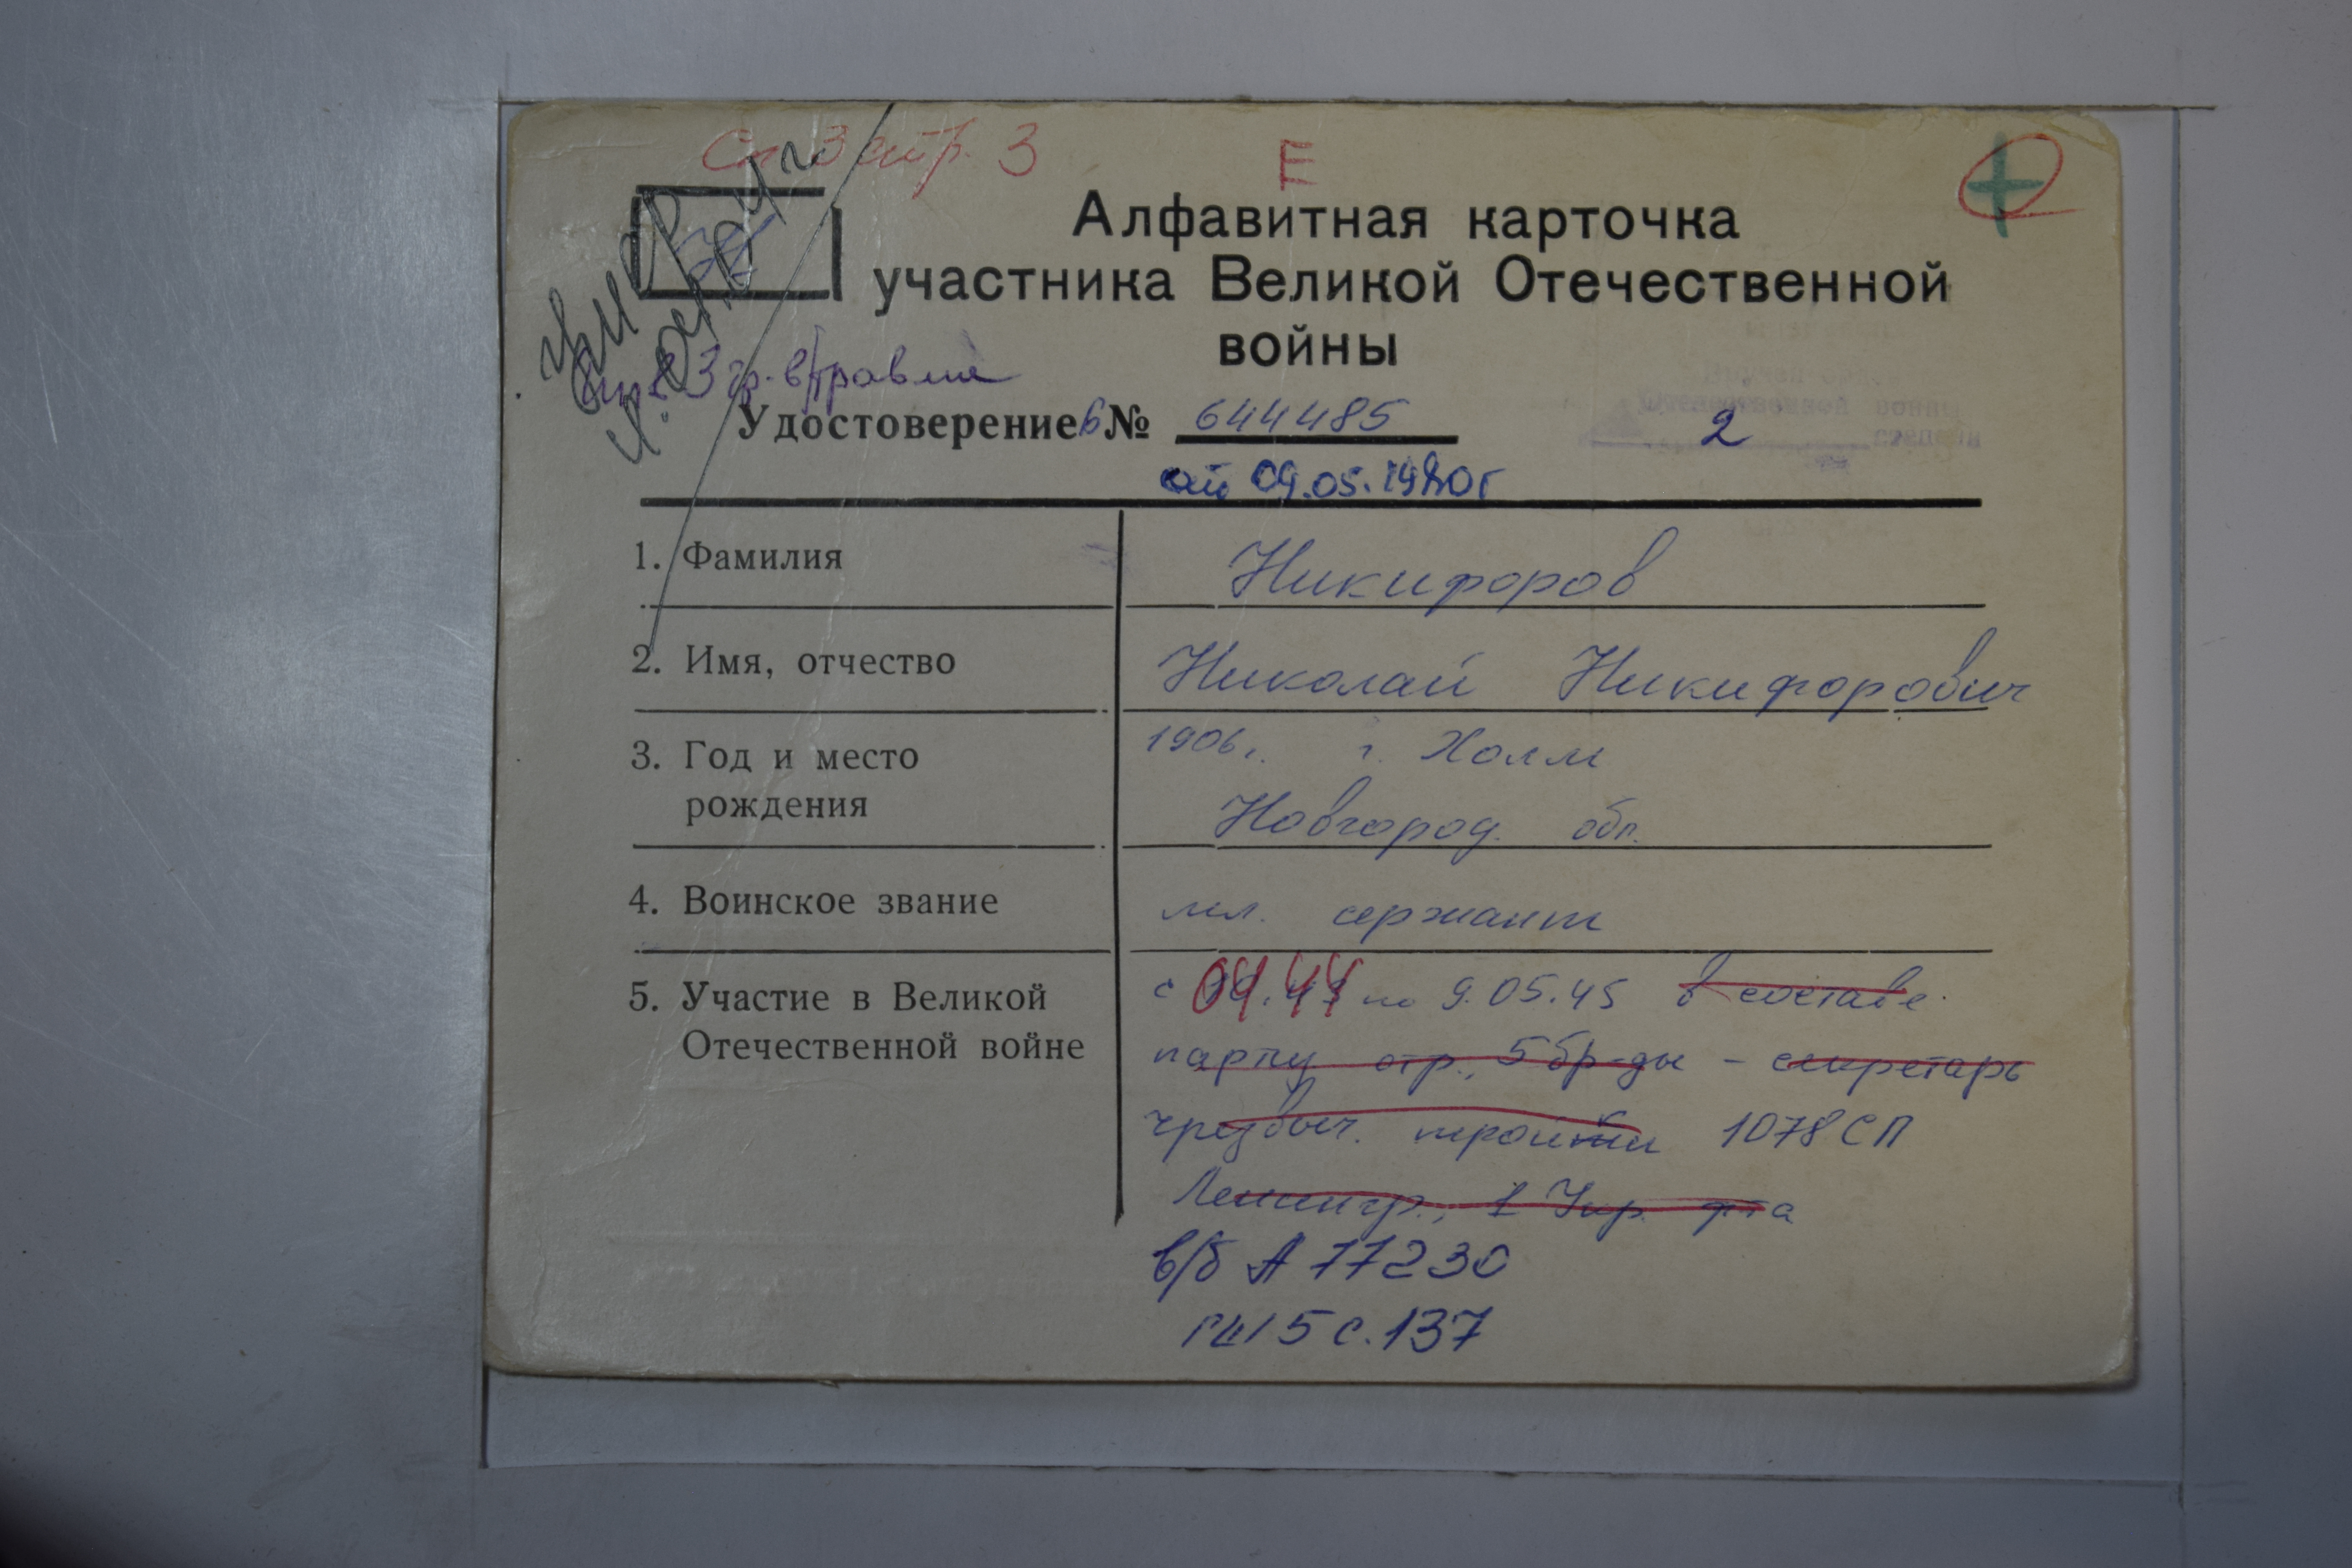 Сп 3 стр. 3
Е
Алфавитная карточка
участника Великой Отечественной
войны
умер
3 гр. в/травма
Удостоверение Б № 644485
2
от 09.05.1980г
1. Фамилия Никифоров
2. Имя, отчество Николай Никифорович
3. Год и место 1906г. г. Холм
рождения Новгород. обл.
4. Воинское звание мл. сержант
5. Участие в Великой с 04.44 по 9.05.45 в составе
Отечественной войне парт. отр., 5 бр-ды - секретарь
чрезвыч. тройки 1078 СП
Ленингр., 1 Укр. ф-та
в/б А 77230
с. 137